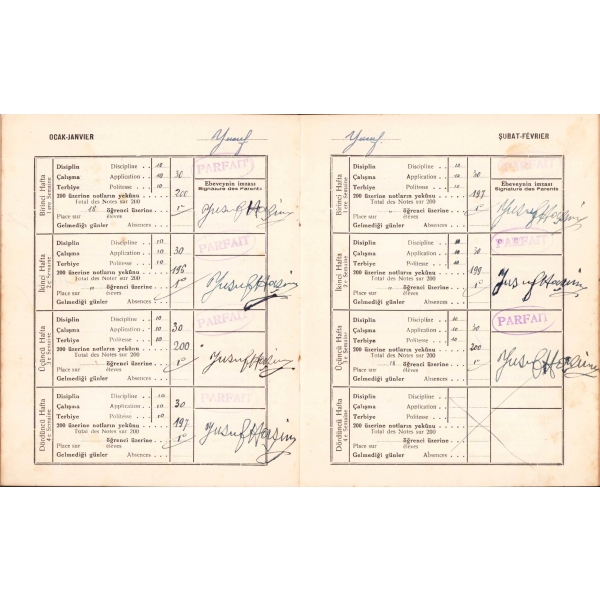 OCAK-JANVIER
Yusuf
Birinci Hafta
1 ere Semaine
Disiplin Discipline . . 10
Çalışma Application . . 10 30
Terbiye Politesse . . . 10
200 üzerine notların yekûnu 200
Total des Notes sur 200
18 öğrenci üzerine . . 1º
Place sur élèves
Gelmediği günler Absences . .
PARFAIT
Ebeveynin imzası
Signature des Parents
Yusuf Haşim
İkinci Hafta
2 e Semaine
Disiplin Discipline . . 10
Çalışma Application . . 10 30
Terbiye Politesse . . . 10
200 üzerine notların yekûnu 196
Total des Notes sur 200
" öğrenci üzerine . . 1º
Place sur élèves
Gelmediği günler Absences . .
PARFAIT
Yusuf Haşim
Üçüncü Hafta
3 e Semaine
Disiplin Discipline . . 10
Çalışma Application . . 10 30
Terbiye Politesse . . . 10
200 üzerine notların yekûnu 200
Total des Notes sur 200
" öğrenci üzerine . . 1º
Place sur élèves
Gelmediği günler Absences . .
PARFAIT
Yusuf Haşim
Dördüncü Hafta
4 e Semaine
Disiplin Discipline . . 10
Çalışma Application . . 10 30
Terbiye Politesse . . . 10
200 üzerine notların yekûnu 197
Total des Notes sur 200
öğrenci üzerine . . 1º
Place sur élèves
Gelmediği günler Absences . .
PARFAIT
Yusuf Haşim
Yusuf.
ŞUBAT-FÉVRIER
Birinci Hafta
1 ere Semaine
Disiplin Discipline . . 10
Çalışma Application . . 10 30
Terbiye Politesse . . . 10
200 üzerine notların yekûnu 197
Total des Notes sur 200
" öğrenci üzerine . . 1º
Place sur élèves
Gelmediği günler Absences . .
PARFAIT
Ebeveynin imzası
Signature des Parents
Yusuf Haşim
İkinci Hafta
2 e Semaine
Disiplin Discipline . . 10
Çalışma Application . . 10 30
Terbiye Politesse . . . 10
200 üzerine notların yekûnu 199
Total des Notes sur 200
" öğrenci üzerine . . 1º
Place sur élèves
Gelmediği günler Absences . .
PARFAIT
Yusuf Haşim
Üçüncü Hafta
3 e Semaine
Disiplin Discipline . . 10
Çalışma Application . . 10 30
Terbiye Politesse . . . 10
200 üzerine notların yekûnu 200
Total des Notes sur 200
18 öğrenci üzerine . . 1º
Place sur élèves
Gelmediği günler Absences . .
PARFAIT
Yusuf Haşim
Dördüncü Hafta
4 e Semaine
Disiplin Discipline . .
Çalışma Application . .
Terbiye Politesse . . .
200 üzerine notların yekûnu
Total des Notes sur 200
öğrenci üzerine . .
Place sur élèves
Gelmediği günler Absences . .